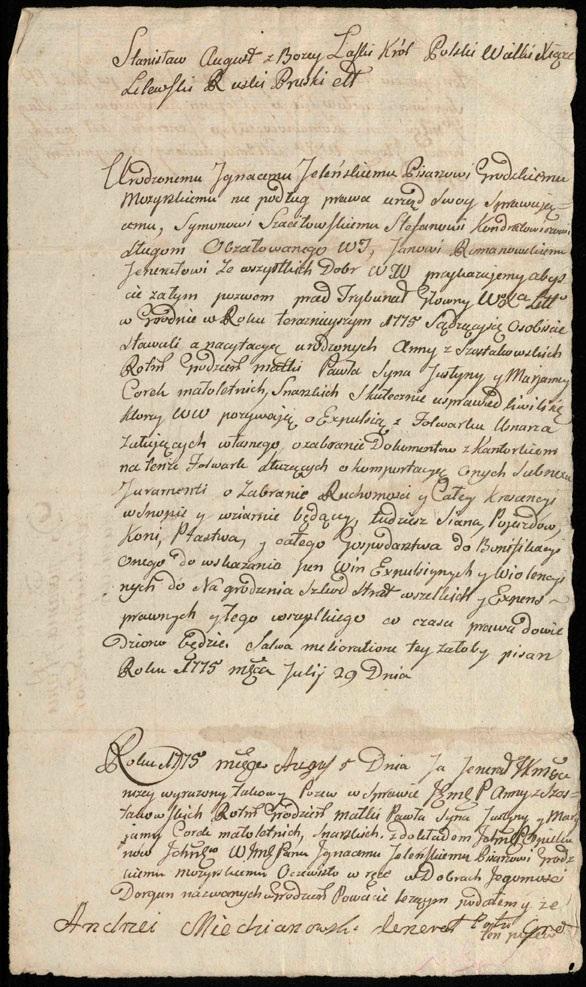 Stanisław August z Bozey Łaski Krol Polski Wielki Xiąze
Litewski Ruski Pruski ett
Urodzonemu Jgnacemu Jeleńskiemu Pisarzowi Grodzkiemu
Mozyrskiemu na podług prawa urząd swoy sprawują=
cemu, Symonowi Szaciłowskiemu Stefanowi Kondratowiczowi
sługom Obzałowanego WJ, Janowi Romanowskiemu
Jenerałowi ze wszystkich Dobr WW przykazujemy abyś
cie zatym pozwem przed Trybunał Głowny WXa Litto
w Grodnie w Roku teraznieyszym 1775 Sądzący się Osobiście
stawali a na cytacyą urodzonych Anny z Szostakowskich
Rotm Grodzień matki Pawła Syna Justyny y Marjanny
Corek małoletnich, Snarskich Skutecznie usprawiedliwili się
ktory WW pozywają o Expulsią z Folwarku Unarza
załujących własnego, o zabranie Dokumentow z Kantorkiem
na tenze Folwark słuzących o komportacyą onych sub nexu
Juramenti o Zabranie Ruchomosci y Całey krescencyi
w snopie y w ziarnie będący, tudziesz Siana, Pojazdow,
Koni, Ptastwa, y całego Gospodarstwa do Bonifikacyi
onego do wskazania Win Expulsyinych y Wiolency
nych do Nagrodzenia Szkod Strat wszelkich y Expens
prawnych y tego wszystkiego co czasu prawa dowie
dziono będzie. Salwa melioratione tey załoby pisan
Roku 1775 męca Julij 29 Dnia
Roku 1775 męca Augus 5 Dnia Ja Jenerał JKmści
nizey wyrazony takowy Pozew w Sprawie Anny z Szos
takowskich Rotm Grodzień matki Pawła Syna Justyny y Mar
janny Corek małoletnich, Snarskich, z dokładem
now WJmć Panu Jgnacemu Jeleńskiemu Pisarzowi Grodz
kiemu Mozyrskiemu Oczewisto w ręce w Dobrach Jegomości
Dorgun nazwanych w Grodzień Powiecie lezącym podałem y ze
Andrzei Miedzianowski Jenerał
ten pozew